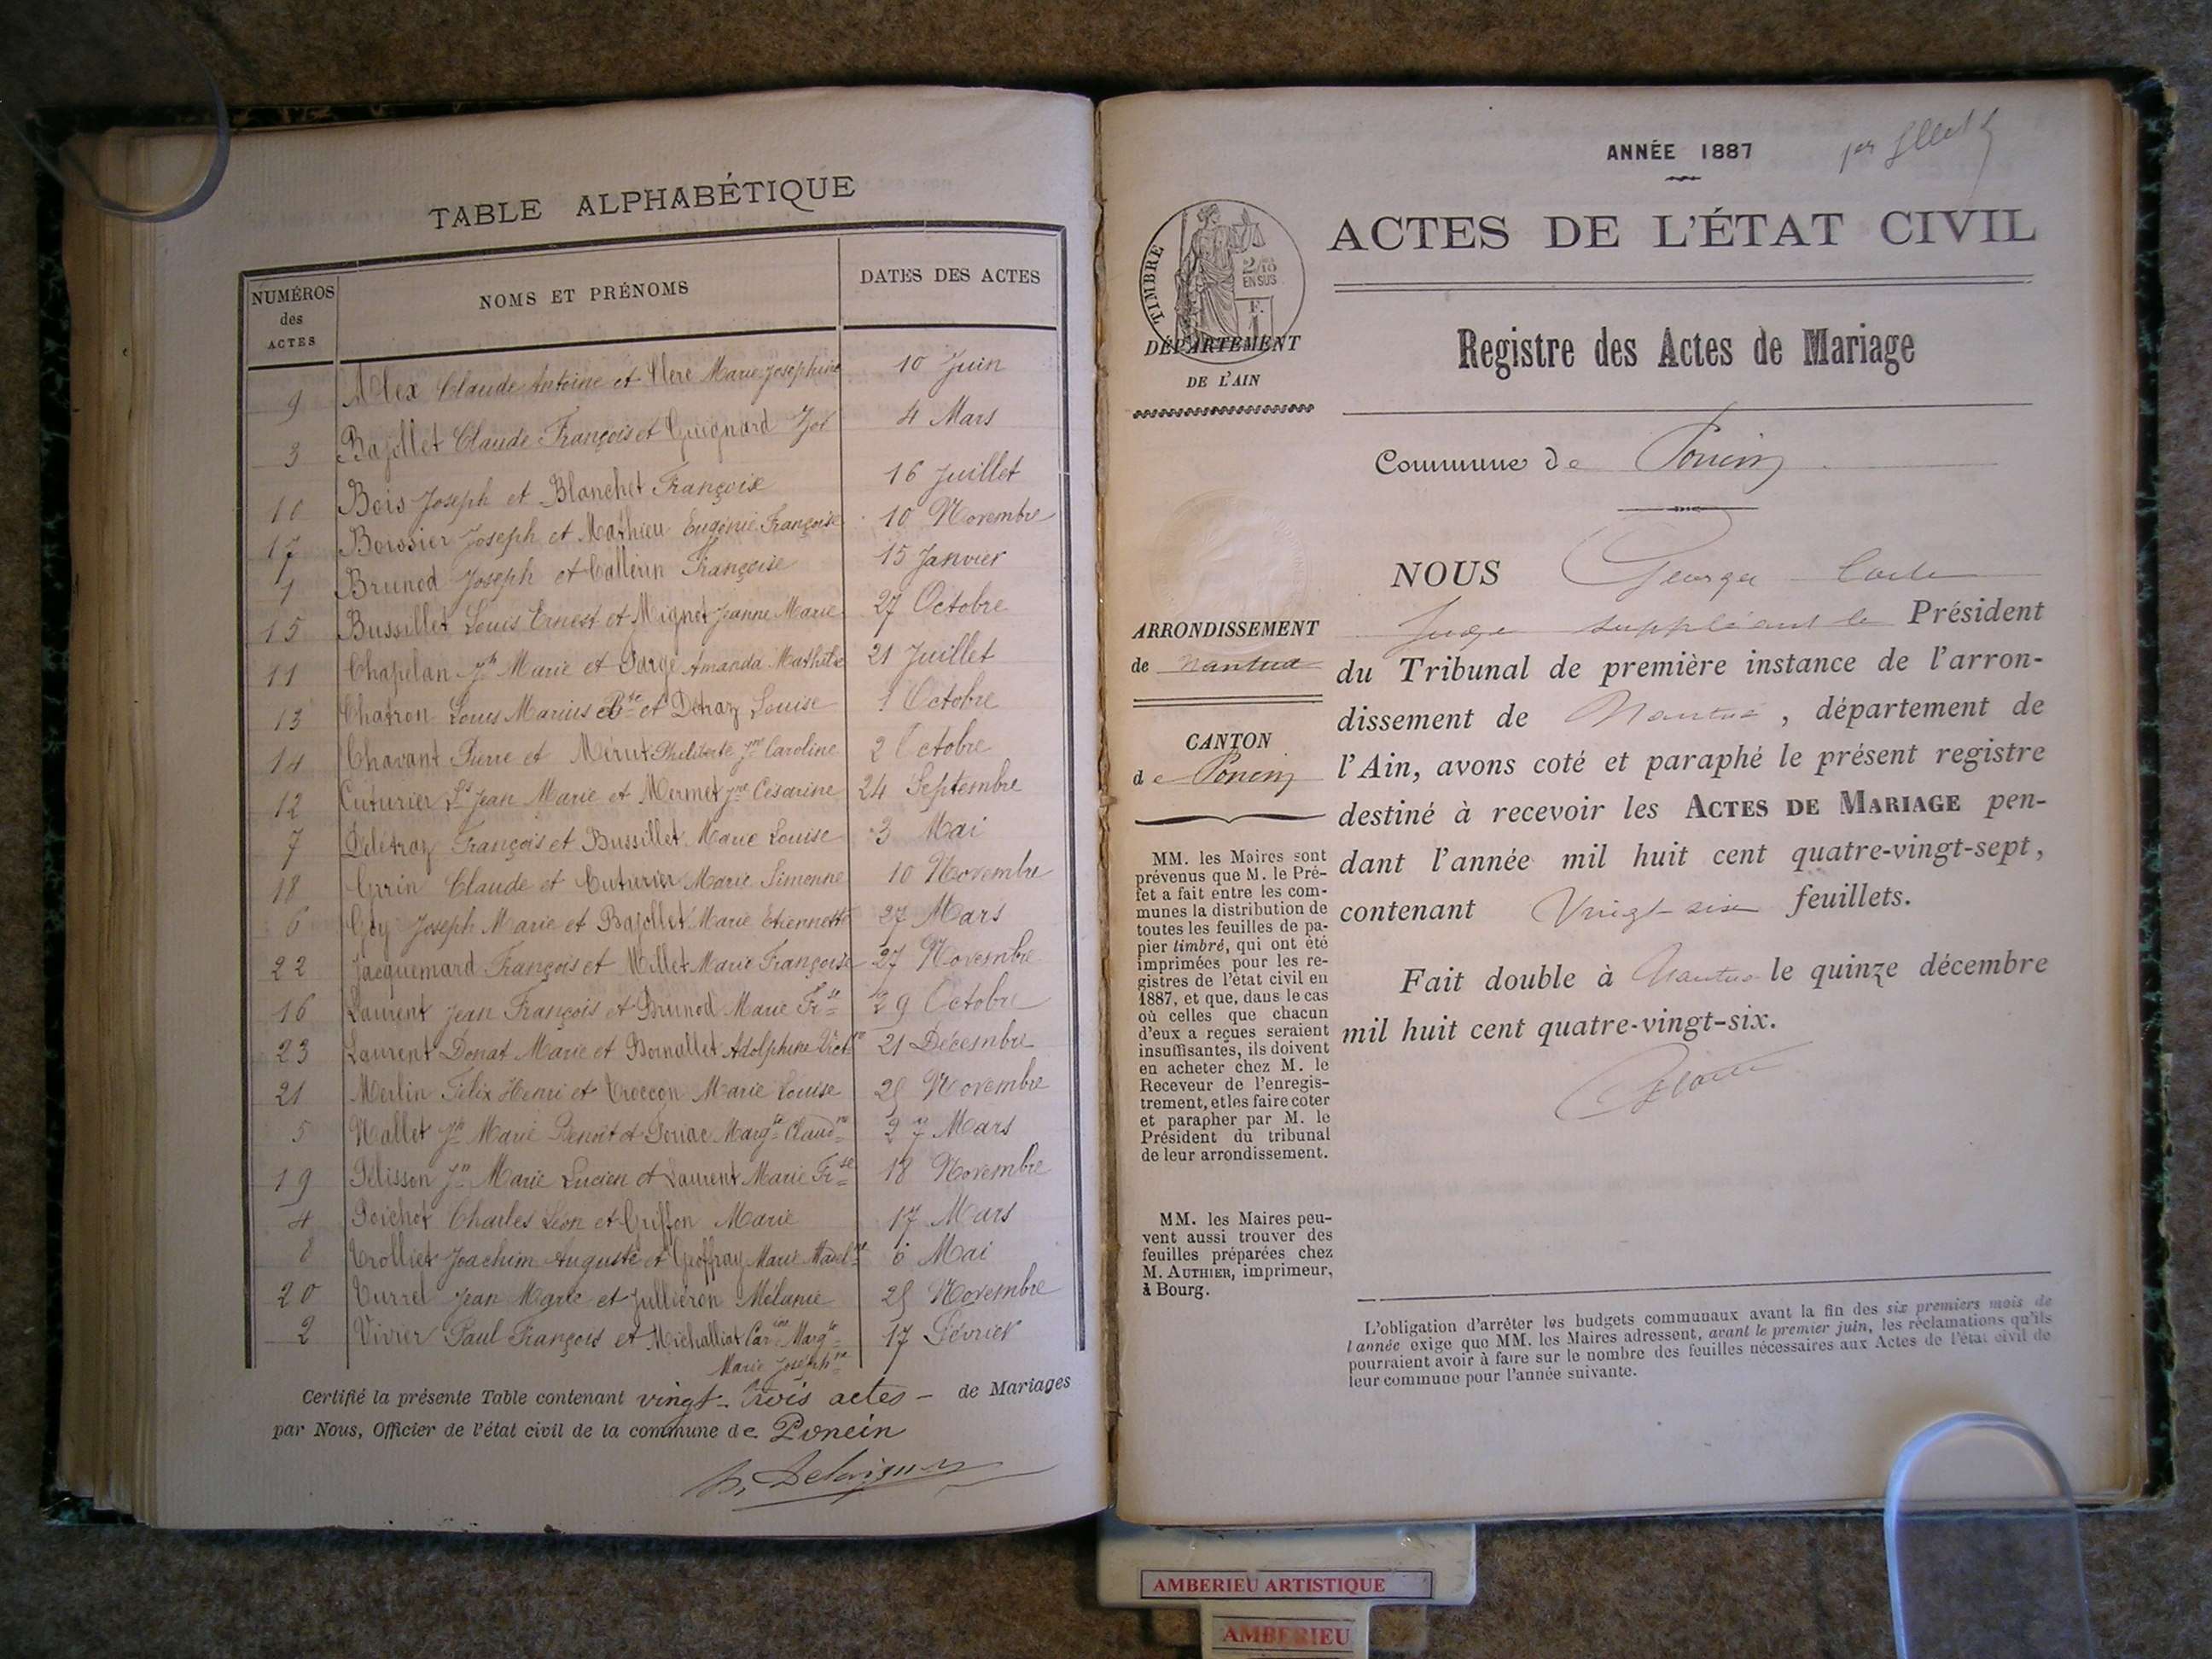 TABLE ALPHABÉTIQUE
NUMÉROS des ACTES
NOMS ET PRÉNOMS
DATES DES ACTES
9 Alex Claude Antoine et Clerc Marie Josephine 10 Juin
3 Bajollet Claude François et Guignard 4 Mars
10 Bois Joseph et Blanchet Françoise 16 Juillet
17 Boissier Joseph et Mathieu Eugénie Françoise 10 Novembre
1 Brunod Joseph et Callerin Françoise 15 Janvier
15 Bussillet Louis Ernest et Mignot Jeanne Marie 27 Octobre
11 Chapelan Jh Marie et Amanda Mathilde 21 Juillet
13 Chatron Louis Marius et Détraz Louise 1 Octobre
14 Chavant Pierre et Philiberte Jne Caroline 2 Octobre
12 Cuturier Ls Jean Marie et Mermet Jne Césarine 24 Septembre
7 Delétraz François et Bussillet Marie Louise 3 Mai
18 Claude et Cuturier Marie Simonne 10 Novembre
6 Goy Joseph Marie et Bajollet Marie Etiennette 27 Mars
22 Jacquemard François et Millet Marie Françoise 27 Novembre
16 Laurent Jean François et Brunod Marie Frse 29 Octobre
23 Laurent Donat Marie et Adolphine 21 Décembre
21 Merlin Félix Henri et Croccon Marie Louise Novembre
5 Nallet Jh Marie Benoît et Margte 27 Mars
19 Pélisson Jn Marie Lucien et Laurent Marie Frse 18 Novembre
4 Poichot Charles Léon et Griffon Marie 17 Mars
8 Trolliet Joachim Auguste et Geoffray Marie 6 Mai
20 Turrel Jean Marie et Jullieron Mélanie Novembre
2 Vivier Paul François et Michalliat Margte 17 Février
Marie Josephne
Certifié la présente Table contenant vingt-trois actes - de Mariages
par Nous, Officier de l'état civil de la commune de Poncin
ANNÉE 1887
ACTES DE L'ÉTAT CIVIL
TIMBRE
2/10
EN SUS
F.
1
DÉPARTEMENT
DE L'AIN
Registre des Actes de Mariage
Commune de Poncin
NOUS Georges
Juge suppléant le Président
ARRONDISSEMENT
de Nantua
du Tribunal de première instance de l'arron-
dissement de Nantua, département de
CANTON
de Poncin
l'Ain, avons coté et paraphé le présent registre
destiné à recevoir les ACTES DE MARIAGE pen-
dant l'année mil huit cent quatre-vingt-sept,
contenant Vingt-six feuillets.
Fait double à Nantua le quinze décembre
mil huit cent quatre-vingt-six.
MM. les Maires sont
prévenus que M. le Pré-
fet a fait entre les com-
munes la distribution de
toutes les feuilles de pa-
pier timbré, qui ont été
imprimées pour les re-
gistres de l'état civil en
1887, et que, dans le cas
où celles que chacun
d'eux a reçues seraient
insuffisantes, ils doivent
en acheter chez M. le
Receveur de l'enregis-
trement, et les faire coter
et parapher par M. le
Président du tribunal
de leur arrondissement.
MM. les Maires peu-
vent aussi trouver des
feuilles préparées chez
M. AUTHIER, imprimeur,
à Bourg.
L'obligation d'arrêter les budgets communaux avant la fin des six premiers mois de
l'année exige que MM. les Maires adressent, avant le premier juin, les réclamations qu'ils
pourraient avoir à faire sur le nombre des feuilles nécessaires aux Actes de l'état civil de
leur commune pour l'année suivante.
AMBERIEU ARTISTIQUE
AMBERIEU